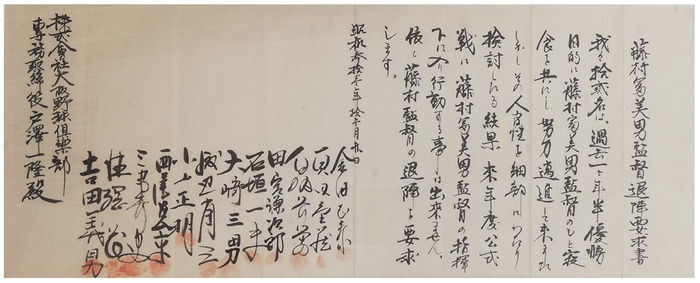 藤村冨美男監督退陣要求書
我々拾弐名は、過去一ヶ年半優勝
目的に藤村冨美男監督のもと寝
食を共にし努力邁進して来ました
しかしその人間性を細部にわたり
検討したる結果来年度公式
戦に藤村冨美男監督の指揮
下に入り行動する事は出来ません。
依て藤村監督の退陣を要求
します。
昭和参拾一年拾一月
金田正泰
真田重蔵
田宮謙次郎
石垣一夫
大崎三男
渡辺省三
小山正明
吉田義男
株式会社大阪野球倶楽部
専務取締役戸澤一隆殿